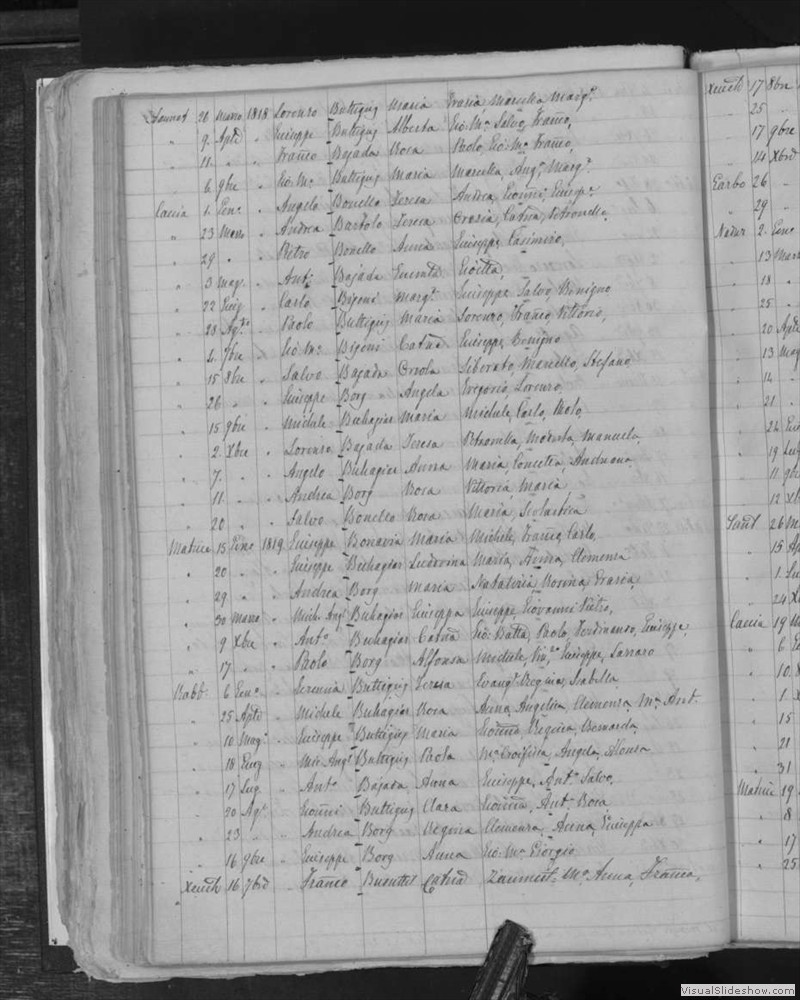 Sannat 26 Marzo 1818 Lorenzo Buttigieg Maria Grazia Marcella Margª
" 9. Aple " Giuseppe Buttigieg Alberta Gio Mª Salvo, Franco,
" 11. " " Franco Bajada Rosa Paolo, Gio: Mª Franco,
" 6 9bre " Gio: Mª Buttigieg Maria Marcella, Angª, Margª
Caccia 1. Genº " Angelo Bonello Teresa Andrea, Giovñi, Giuseppe
" 23 Marzo " Andrea Bartolo Teresa Grazia, Catna, Petronella,
" 29 " " Pietro Bonello Anna Giuseppe, Casimiro,
" 3 Mag. " Antº Bajada
" 22 Giug " Carlo Bigeni Margª Giuseppe Salvo, Benigno
" 28 Agto " Paolo Buttigieg Maria Lorenzo, Franco, Vittorio,
" 2. 7bre " Gio Mª Bigeni Catna Giuseppe, Benigno
" 15 8bre " Salvo Bajada Liberato, Marcello, Stefano
" 26 " " Giuseppe Borg Angela Gregorio, Lorenzo,
" 15 9bre " Michele Buhagiar Maria Michele, Carlo, Paolo,
" 2. Xbre " Lorenzo Bajada Teresa Petronilla, Modesta, Manuela,
" 7. " " Angelo Buhagiar Anna Maria, Concetta, Andreana
" 11. " " Andrea Borg Rosa Vittoria, Maria
" 20 " " Salvo Bonello Rosa Maria, Scolastica
15 Genº 1819 Giuseppe Bonavia Maria Michele, Franco, Carlo,
" 20 " " Giuseppe Buhagiar Ludovina Maria, Anna, Clemenza
" 29 " " Andrea Borg Maria Natalizia, Rosina, Grazia,
" 30 Marzo " Mich. Angº Buhagiar Giuseppa Giuseppe, Giovanni Pietro,
" 9 Xbre " Antº Buhagiar Catna Gio: Batta, Paolo, Ferdinando, Giuseppe,
" 17 " " Paolo Borg Alfonsa Michele, Vinzº, Giuseppe,
Rabb. 6 Genº " Buttigieg Teresa Evangª, Regina, Isabella
" 25 Aple " Michele Buhagiar Rosa Anna, Angelica, Clemenza, Mª Ant.
" 10 Mag. " Giuseppe Buttigieg Maria Giovña, Regina, Bernarda,
" 18 Giug " Mic. Angº Buttigieg Paola Mª Crocifissa, Angela,
" 17 Lug " Antº Bajada Anna Giuseppe, Antº Salvo,
" 20 Agº " Giovñi Buttigieg Clara Giovña, Ant. Rosa
" 23 " " Andrea Borg Regina Clemenza, Anna, Giuseppa
" 16 9bre " Giuseppe Borg Anna Gio Mª Giorgio
Xeuch 16 7bre " Franco Busuttil Catna Mª, Anna, Franca,
Xeuch 17 8bre
" 25
" 17 9bre
" 14 Xbre
Garbo 26
" 29
Nadur 2. Genº
" 13 Marz
" 18
" 25
" 20 Aple
" 13 Mag
" 14
" 21
" 24 Giu
" 19 Lug
" 11 9b
" 12 Xb
Sant. 26 M
" 15 Ap
" 1. Lu
" 24 X
Caccia 19 M
" 6
" 10.
" 1.
" 15
" 21
" 31
19
" 8
" 17
" 25
VisualSlideshow.com